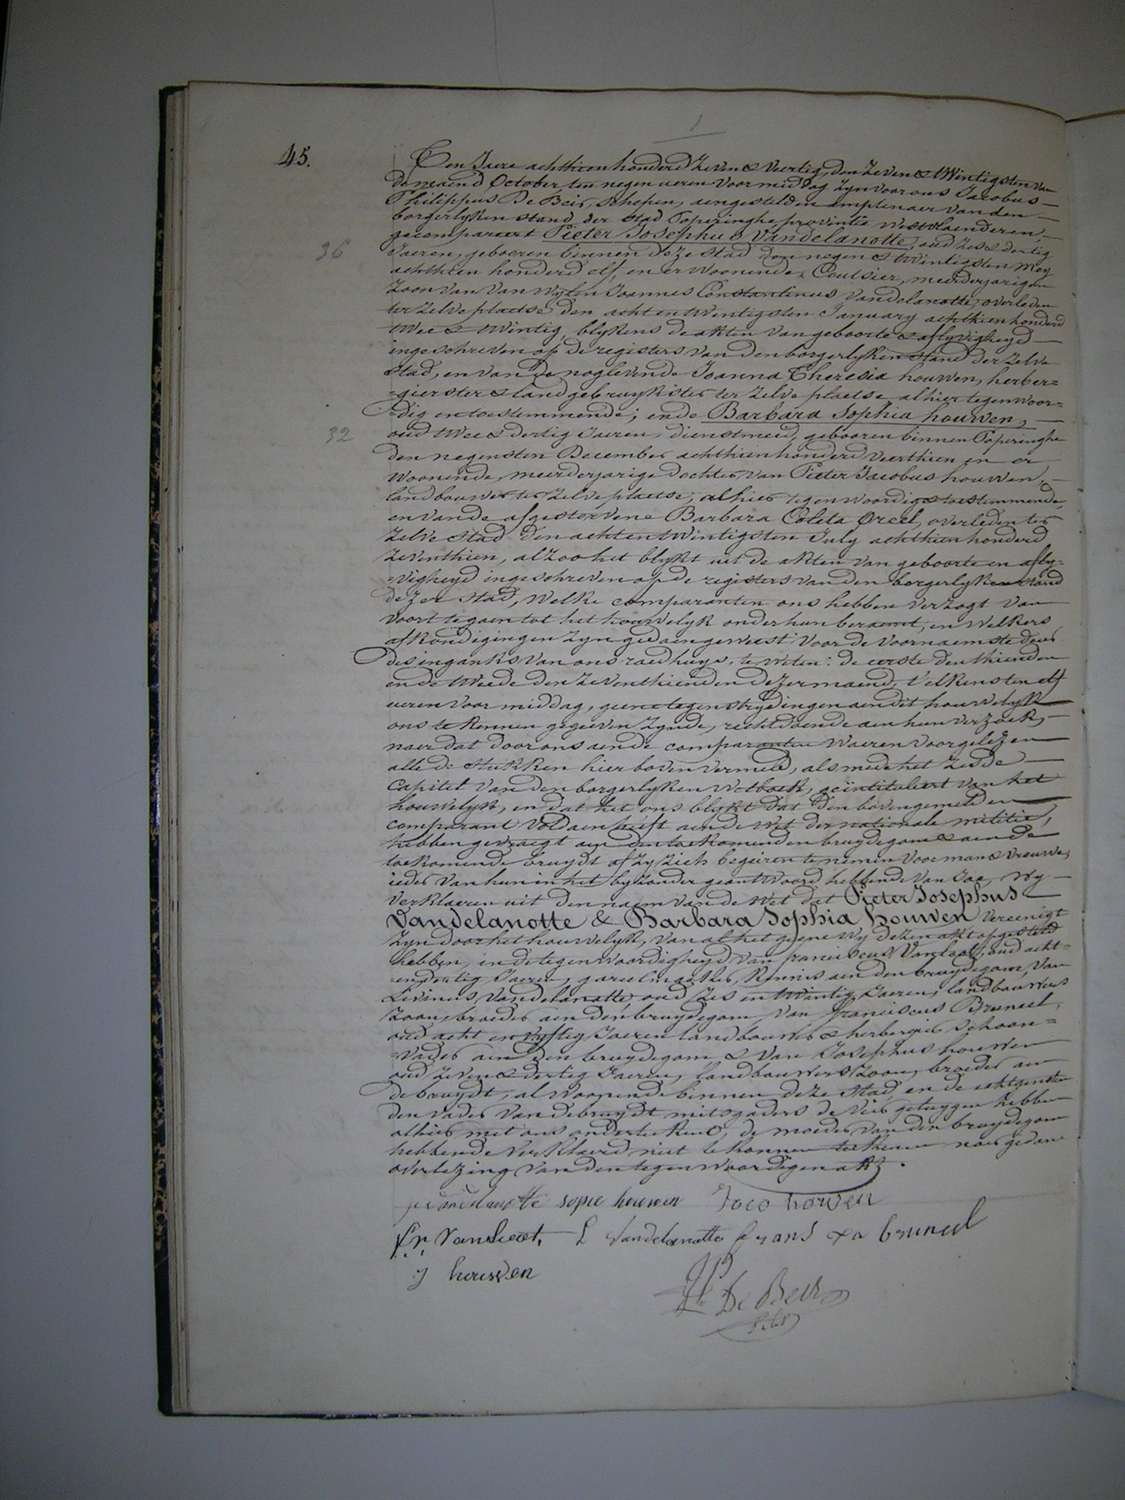 45.
Den Jaere achthien honderd zeven & veertig, den zeven & twintigsten van
de maend October ten negen ueren voormiddag zyn voor ons Jacobus
Philippus De Beir, schepen, aengestelden amptenaer van den
borgerlyken stand der stad Poperinghe provintie Westvlaenderen
gecompareert Pieter Josephus Vandelanotte, oud zes & dertig
36
Jaeren, geboren binnen deze stad den negen & twintigsten mey
achthien honderd elf, en er woonende, Coutsier, meerderjarigen
zoon van wylen Joannes Constantinus Vandelanotte, overleden
ter zelve plaetse den acht en twintigsten January achthien honderd
twee & twintig, blykens de akten van geboorte & aflyvigheyd
ingeschreven op de registers van den borgerlyken stand der zelve
stad, en van de noglevende Joanna Theresia houwen, herber-
-gierster & landgebruykster ter zelve plaetse, alhier tegenwoor-
-dig en toestemmende; ende Barbara Sophia houwen,
32
oud twee & dertig Jaeren, dienstmeid, geboren binnen Poperinghe
den negensten December achthien honderd veerthien en er
woonende, meerderjarige dochter van Pieter Jacobus houwen,
landbouwer ter zelve plaetse, alhier tegenwoordig & toestemmende,
en van de afgestorvene Barbara Coleta Oreel, overleden ter
zelve stad den acht en twintigsten July achthien honderd
zeventhien, alzoo het blykt uit de akten van geboorte en afly-
-vigheyd ingeschreven op de registers van den borgerlyken stand
dezer stad, welke comparanten ons hebben verzogt van
voort te gaen tot het houwelyk onder hun beraemt, en welkers
afkondigingen zyn gedaen geweest voor de voornaemste deur
des inganks van ons raedhuys, te weten: de eerste den thienden
en de tweede den zeventhienden dezer maend, telkens ten elf
ueren voormiddag, geene tegenstrydingen aen dit houwelyk
ons te kennen gegeven zynde, rechtdoende aen hun verzoek,
naer dat door ons aen de comparanten waeren voorgelezen
alle de stukken hier boven vermeld, als mede het zesde
Capitel van den borgerlyken wetboek, geintituleert van het
houwelyk, en dat het ons blykt dat den bovengemelden
comparant voldaen heeft aen de wet der nationale militie,
hebben gevraegt aen den toekomenden bruydegom & aen de
toekomende bruydt of zy zich begeiren te nemen voor man & vrouwe,
ieder van hun in het byzonder geantwoord hebbende van Jae, wy
verklaeren uit den naem van de wet dat Pieter Josephus
Vandelanotte & Barbara Sophia houwen vereenigt
zyn door het houwelyk, van al het gene wy dezen akt opgesteld
hebben, in de tegenwoordigheyd van franciscus Vanleat, oud acht-
-en dertig Jaeren, gareelmaeker, kennis aen den bruydegom, van
Livinus Vandelanotte oud zes en twintig Jaeren, landbouwers
zoon, broeder aen den bruydegom, van franciscus Bruneel
oud acht en vyftig Jaeren landbouwer & herbergier schoon-
-vader aen den bruydegom & van Josephus houwen
oud zeven & dertig Jaeren, landbouwers zoon, broeder aen
de bruydt, al woonende binnen deze stad, en de echtgenoten
den vader van de bruydt mitsgaders de vier getuygen hebben
alhier met ons onderteekend, de moeder van den bruydegom
hebbende verklaerd niet te konnen teekenen naer gedane
overlezing van den tegenwoordigen akt.
p vandelanotte sopie houwen Jaco houwen
fr Vanleat, L Vandelanotte frans xa bruneel
j houwen
JP De Beir